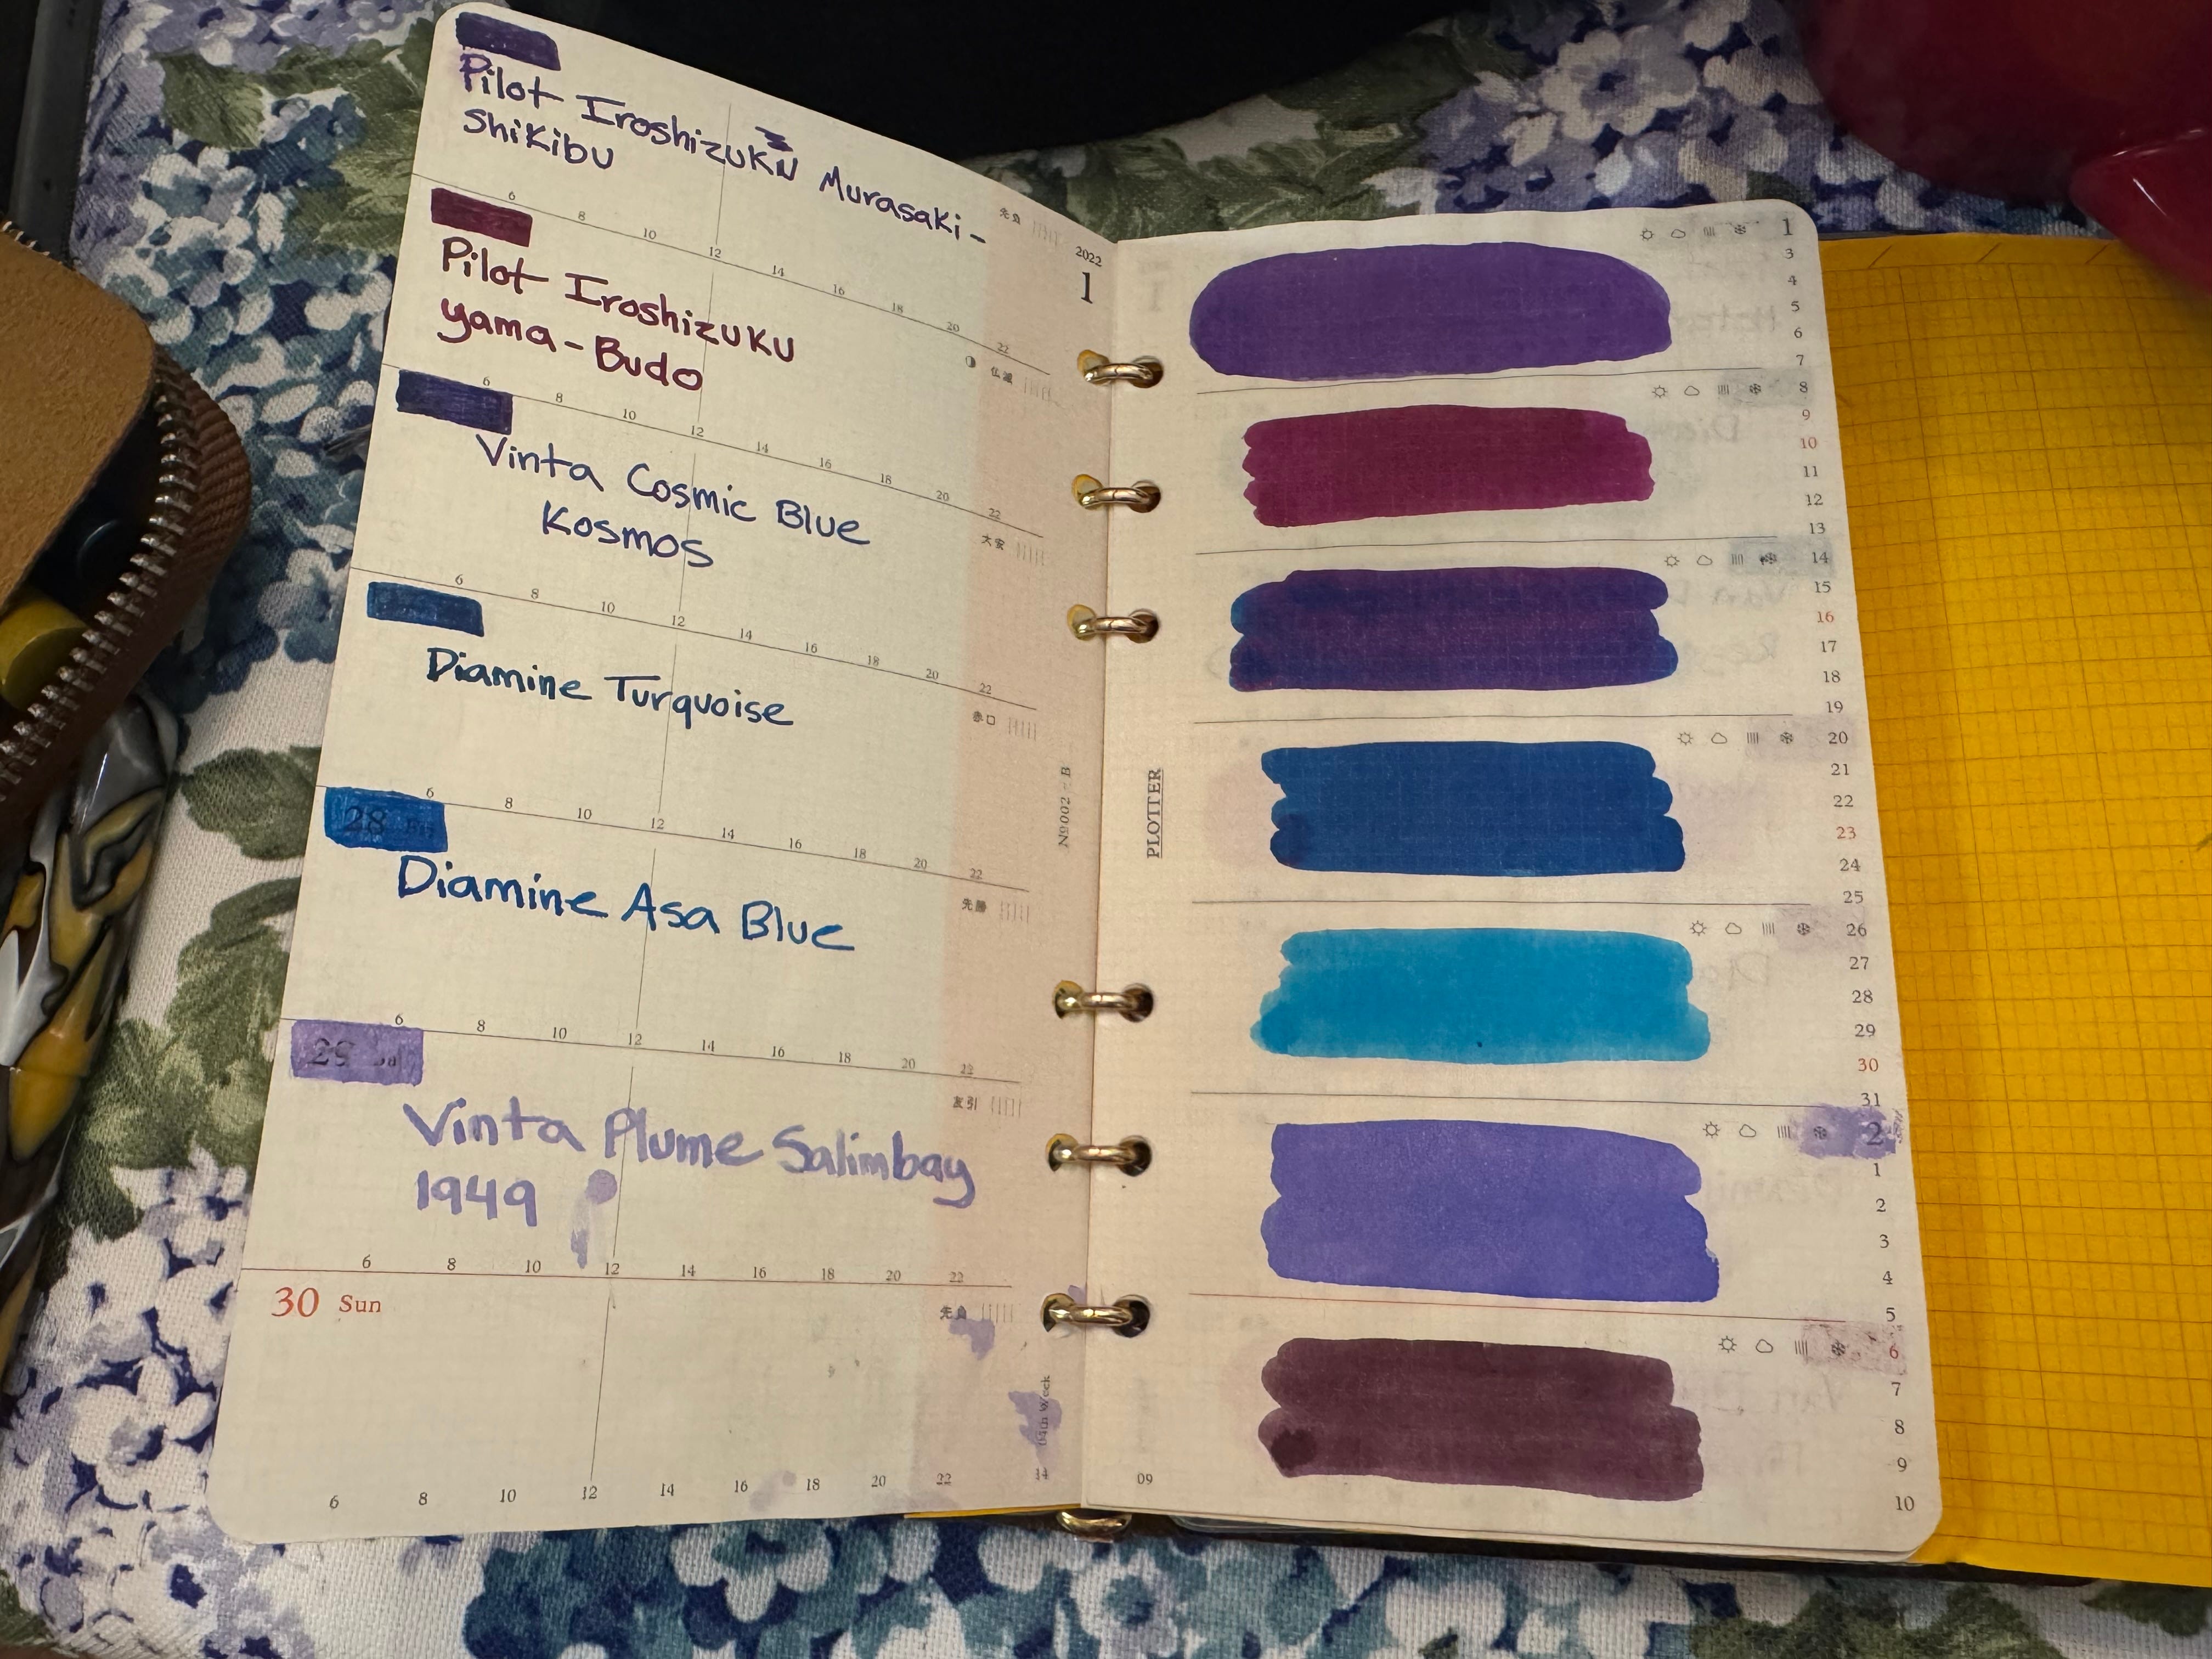 Pilot Iroshizuku Murasaki-
Shikibu
先負
6 8 10 12 14 16 18 20 22
2022
1
Pilot Iroshizuku
yama-Budo
仏滅
6 8 10 12 14 16 18 20 22
Vinta Cosmic Blue
Kosmos
大安
6 8 10 12 14 16 18 20 22
Diamine Turquoise
赤口
6 8 10 12 14 16 18 20 22
28 Fri
Diamine Asa Blue
先勝
6 8 10 12 14 16 18 20 22
29 Sat
Vinta Plume Salimbay
1949
友引
6 8 10 12 14 16 18 20 22
30 Sun
先負
6 8 10 12 14 16 18 20 22
04th Week
14
No002 - B
PLOTTER
09
1
3
4
5
6
7
8
9
10
11
12
13
14
15
16
17
18
19
20
21
22
23
24
25
26
27
28
29
30
31
2
1
2
3
4
5
6
7
8
9
10